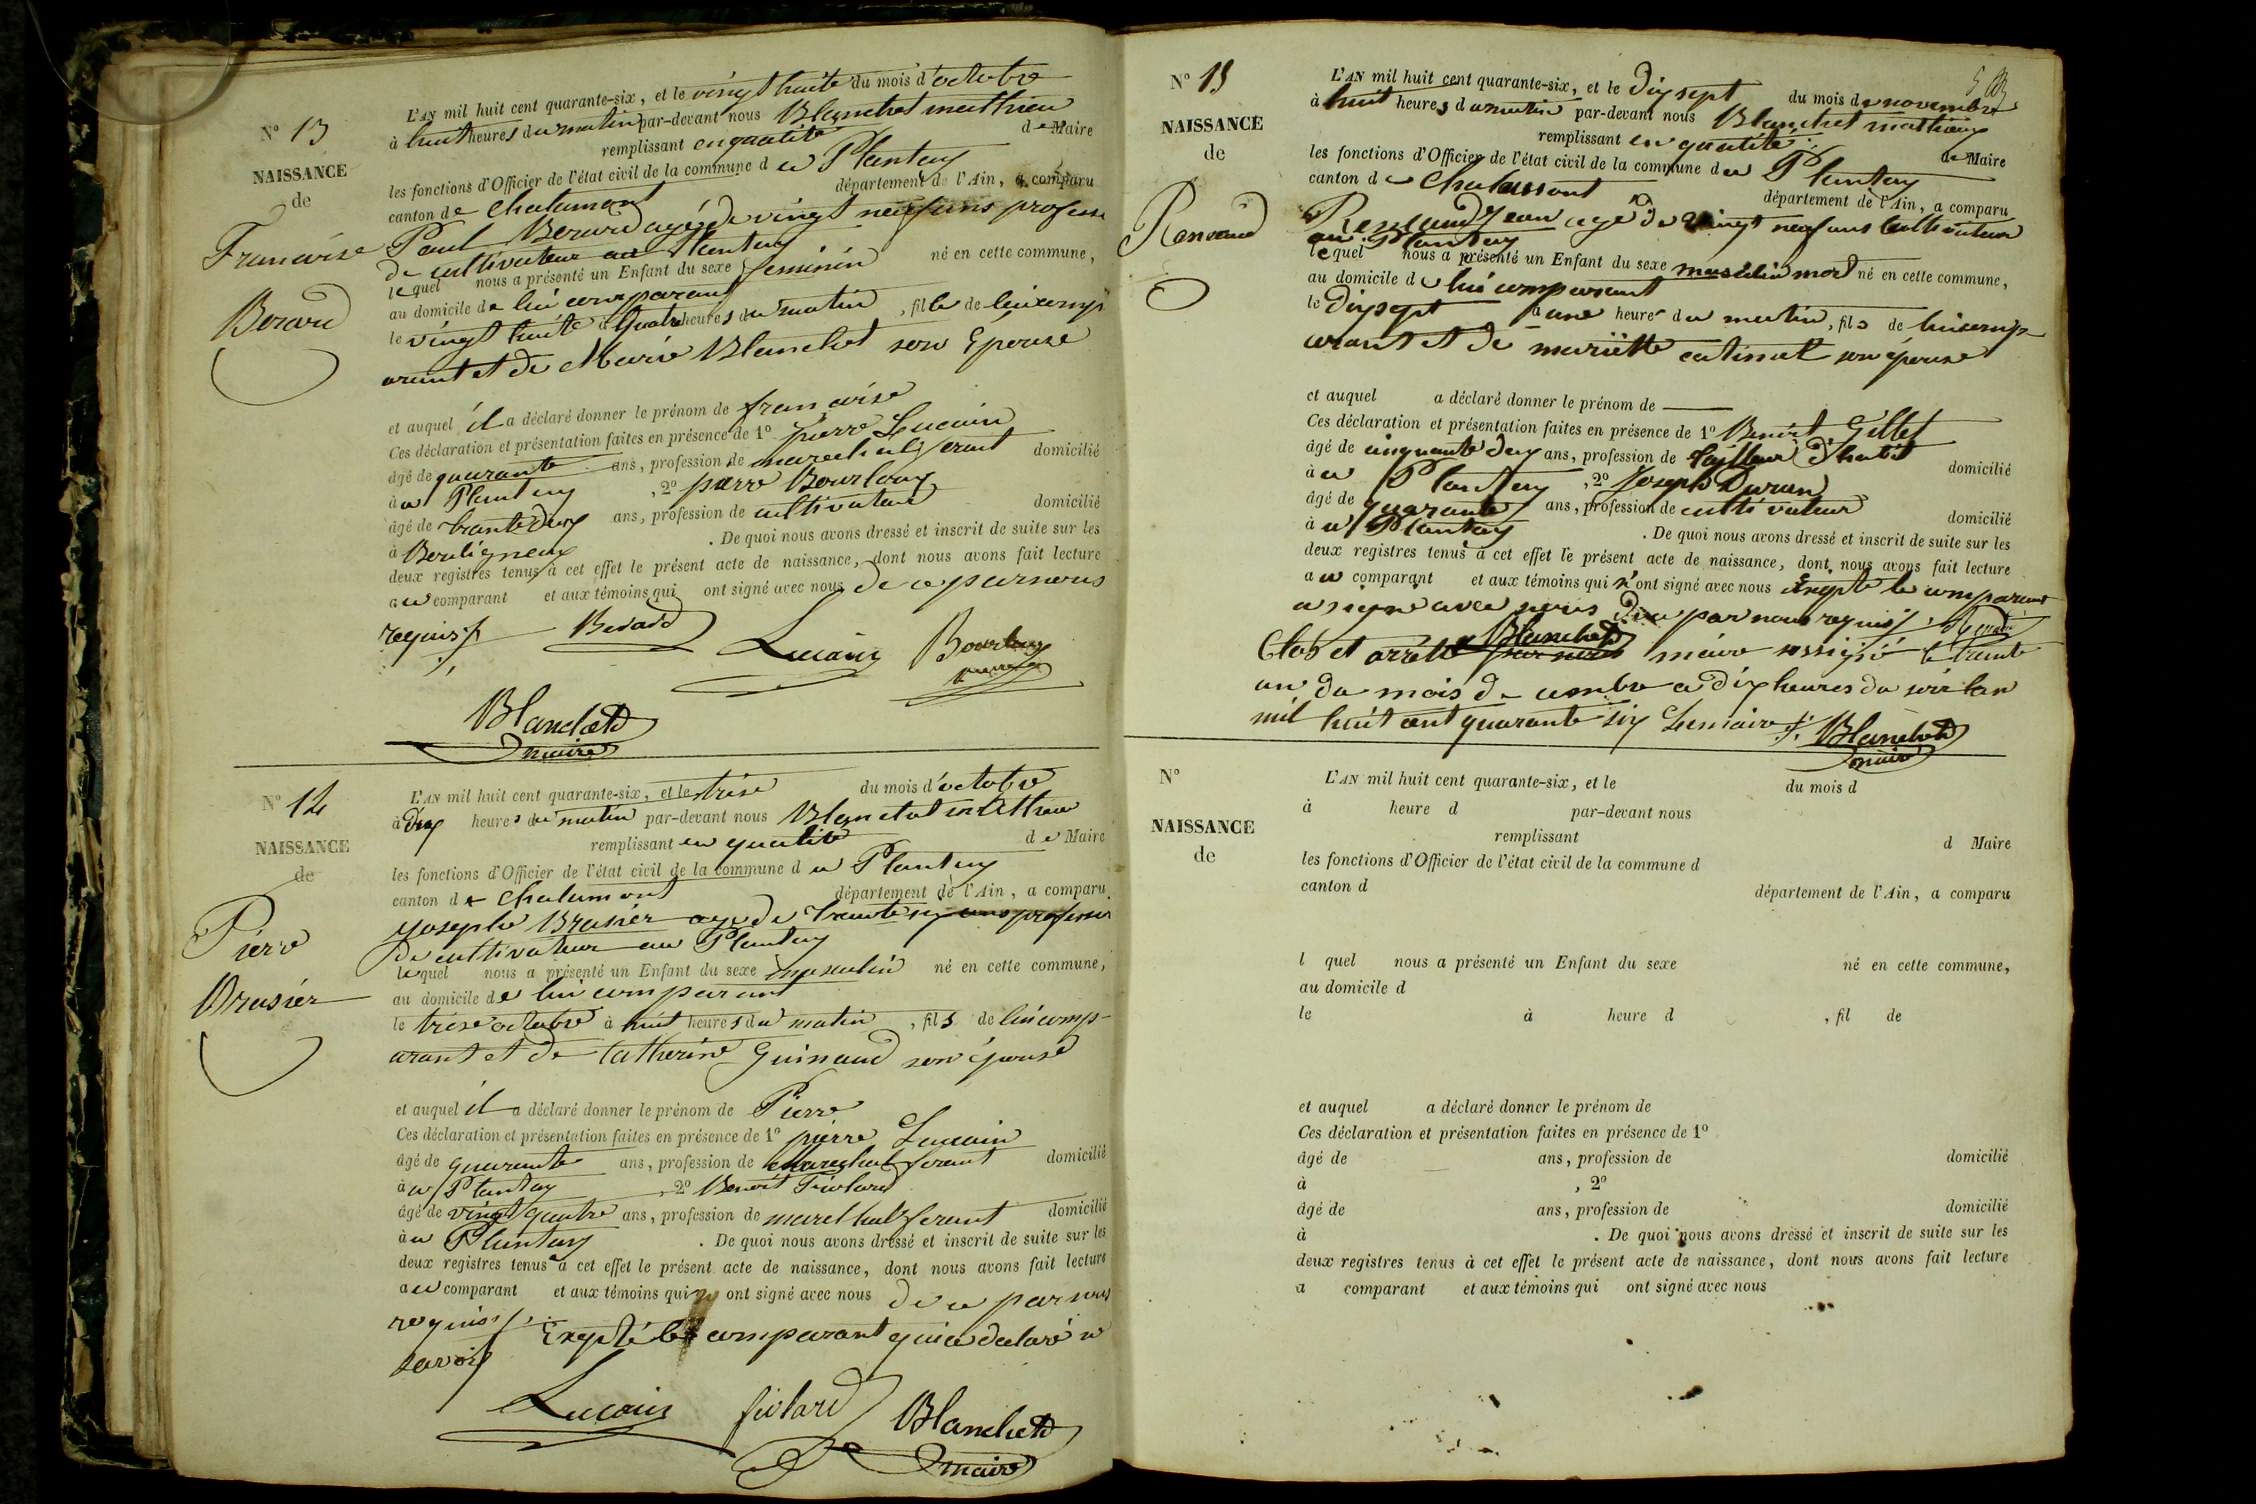 N° 13
NAISSANCE
de
Francoise
Berard
L'AN mil huit cent quarante-six, et le vingt huite du mois d'octobre
à huit heures du matin par-devant nous Blanchet mathieu
remplissant en qualité de Maire
les fonctions d'Officier de l'état civil de la commune du Plantay
canton de Chalamont département de l'Ain, a comparu
Paul Berard agé de vingt neuf ans profess
de cultivateur au Plantay
lequel nous a présenté un Enfant du sexe feminin né en cette commune,
au domicile de lui comparant
le vingt huite à quatre heures du matin, fille de lui comp
arant et de Marie Blanchet son Epouse
et auquel il a déclaré donner le prénom de francoise
Ces déclaration et présentation faites en présence de 1° pierre Lucain
âgé de quarante ans, profession de marechal ferant domicilié
à au Plantay, 2° pierre Bourlouy
âgé de trante deux ans, profession de cultivateur domicilié
à Bouligneux. De quoi nous avons dressé et inscrit de suite sur les
deux registres tenus à cet effet le présent acte de naissance, dont nous avons fait lecture
au comparant et aux témoins qui ont signé avec nous de ce par nous
requis
Berard Lucain
Blanchet
maire
N° 14
NAISSANCE
de
Pierre
Brasier
L'AN mil huit cent quarante-six, et le trèse du mois d'octobre
à dix heures du matin par-devant nous Blanchet mathieu
remplissant en qualité de Maire
les fonctions d'Officier de l'état civil de la commune du Plantay
canton de Chalamont département de l'Ain, a comparu
Joseph Brasier agé de trante six ans profession
de cultivateur au Plantay
lequel nous a présenté un Enfant du sexe masculin né en cette commune,
au domicile de lui comparant
le trèse octobre à huit heures du matin, fils de lui comp-
arant et de Catherine Guinaud son épouse
et auquel il a déclaré donner le prénom de Pierre
Ces déclaration et présentation faites en présence de 1° pierre Lucain
âgé de quarante ans, profession de Marechal ferant domicilié
à au Plantay, 2° Benoit
âgé de vingt quatre ans, profession de marechal ferant domicilié
à au Plantay. De quoi nous avons dressé et inscrit de suite sur les
deux registres tenus à cet effet le présent acte de naissance, dont nous avons fait lecture
au comparant et aux témoins qui ont signé avec nous de ce par nous
requis Exepté le comparant qui a declaré ne
savoir
Lucain Blanchet
maire
N° 15
NAISSANCE
de
Renaud
L'AN mil huit cent quarante-six, et le dix sept du mois de novembre
à huit heures du matin par-devant nous Blanchet mathieu
remplissant en qualité de Maire
les fonctions d'Officier de l'état civil de la commune du Plantay
canton de Chalamont département de l'Ain, a comparu
Renaud Jean agé de vingt neuf ans cultivateur
au Plantay
lequel nous a présenté un Enfant du sexe masculin mort né en cette commune,
au domicile de lui comparant
le dix sept à une heure du matin, fils de lui comp
arant et de mariette catinat son épouse
et auquel a déclaré donner le prénom de ——
Ces déclaration et présentation faites en présence de 1° Benoit Gillet
âgé de cinquante deux ans, profession de tailleur d'habit domicilié
à au Plantay, 2° Joseph Duran
âgé de quarante ans, profession de cultivateur domicilié
à au Plantay. De quoi nous avons dressé et inscrit de suite sur les
deux registres tenus à cet effet le présent acte de naissance, dont nous avons fait lecture
au comparant et aux témoins qui n'ont signé avec nous exepté le comparant
a signé avec nous de ce par nous requis
Blanchet
Clos et arrêté par nous maire le trante
un du mois de cembre a dix heures du soir lan
mil huit cent quarante six Le maire Blanchet
maire
N°
NAISSANCE
de
L'AN mil huit cent quarante-six, et le du mois d
à heure d par-devant nous
remplissant d Maire
les fonctions d'Officier de l'état civil de la commune d
canton d département de l'Ain, a comparu
l quel nous a présenté un Enfant du sexe né en cette commune,
au domicile d
le à heure d, fil de
et auquel a déclaré donner le prénom de
Ces déclaration et présentation faites en présence de 1°
âgé de ans, profession de domicilié
à, 2°
âgé de ans, profession de domicilié
à. De quoi nous avons dressé et inscrit de suite sur les
deux registres tenus à cet effet le présent acte de naissance, dont nous avons fait lecture
a comparant et aux témoins qui ont signé avec nous